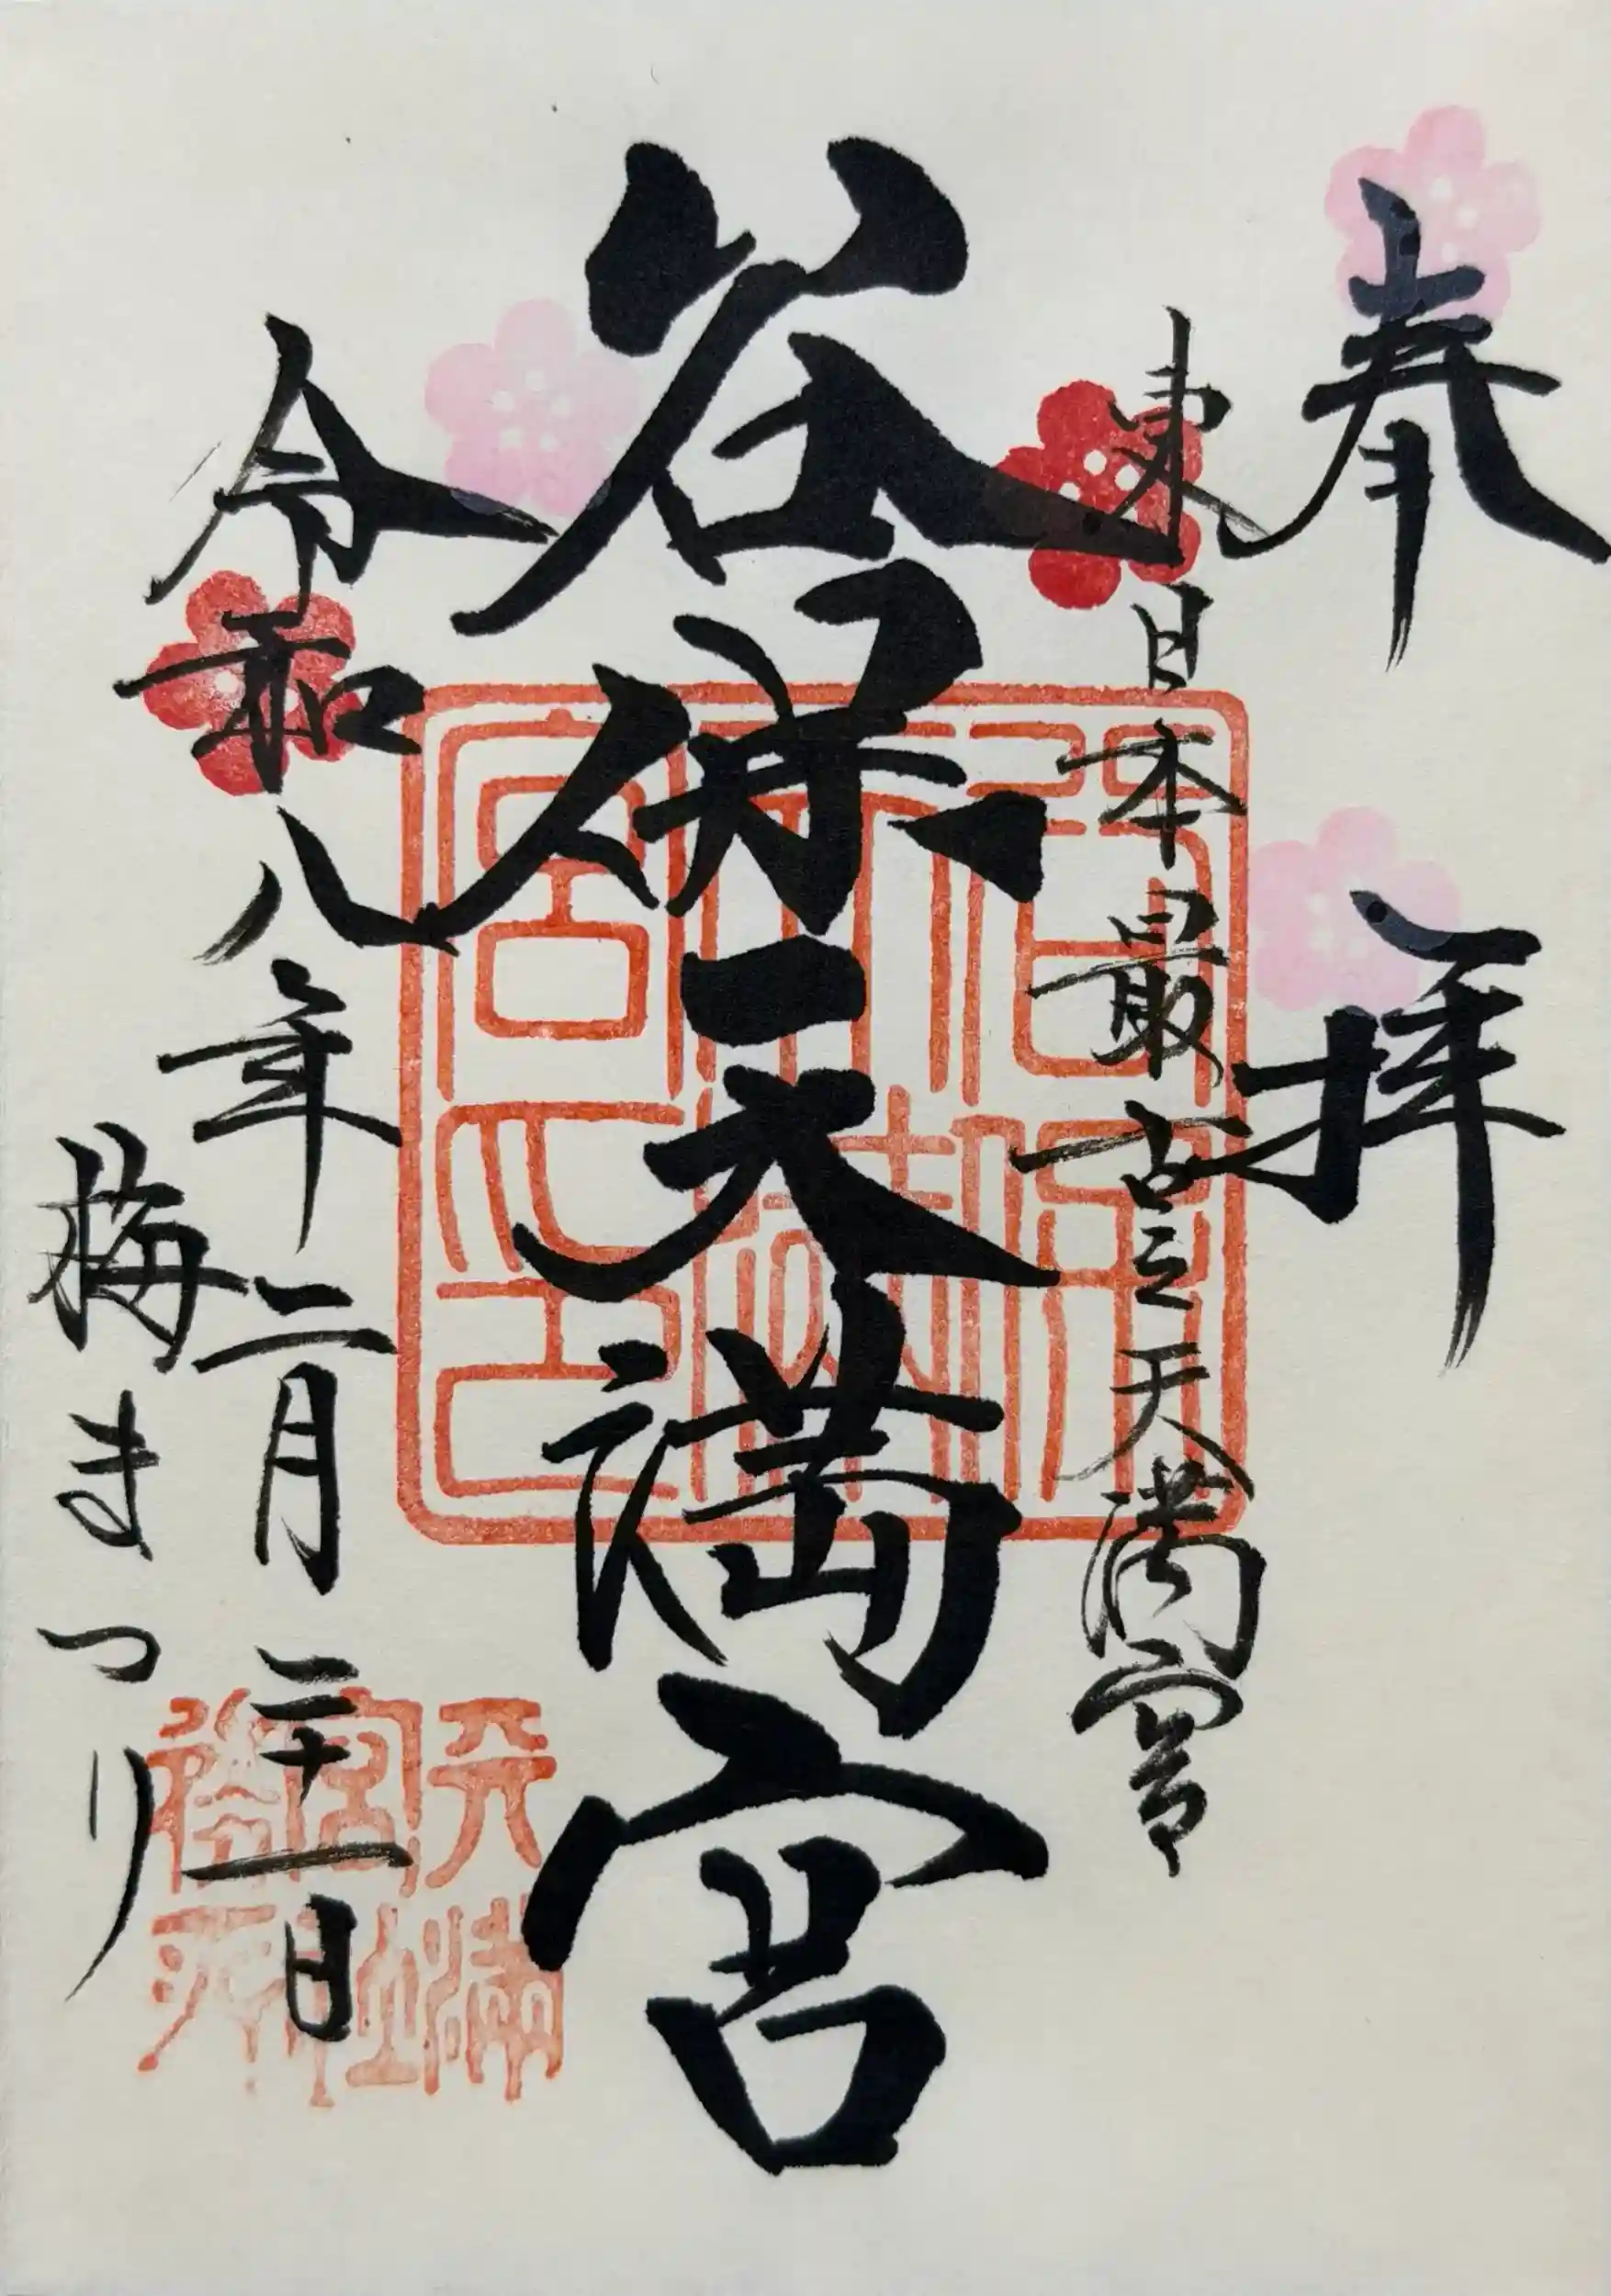 奉拝
東日本最古之天満宮
谷保天満宮
令和八年二月二十一日
梅まつり
天満
宮社
務所